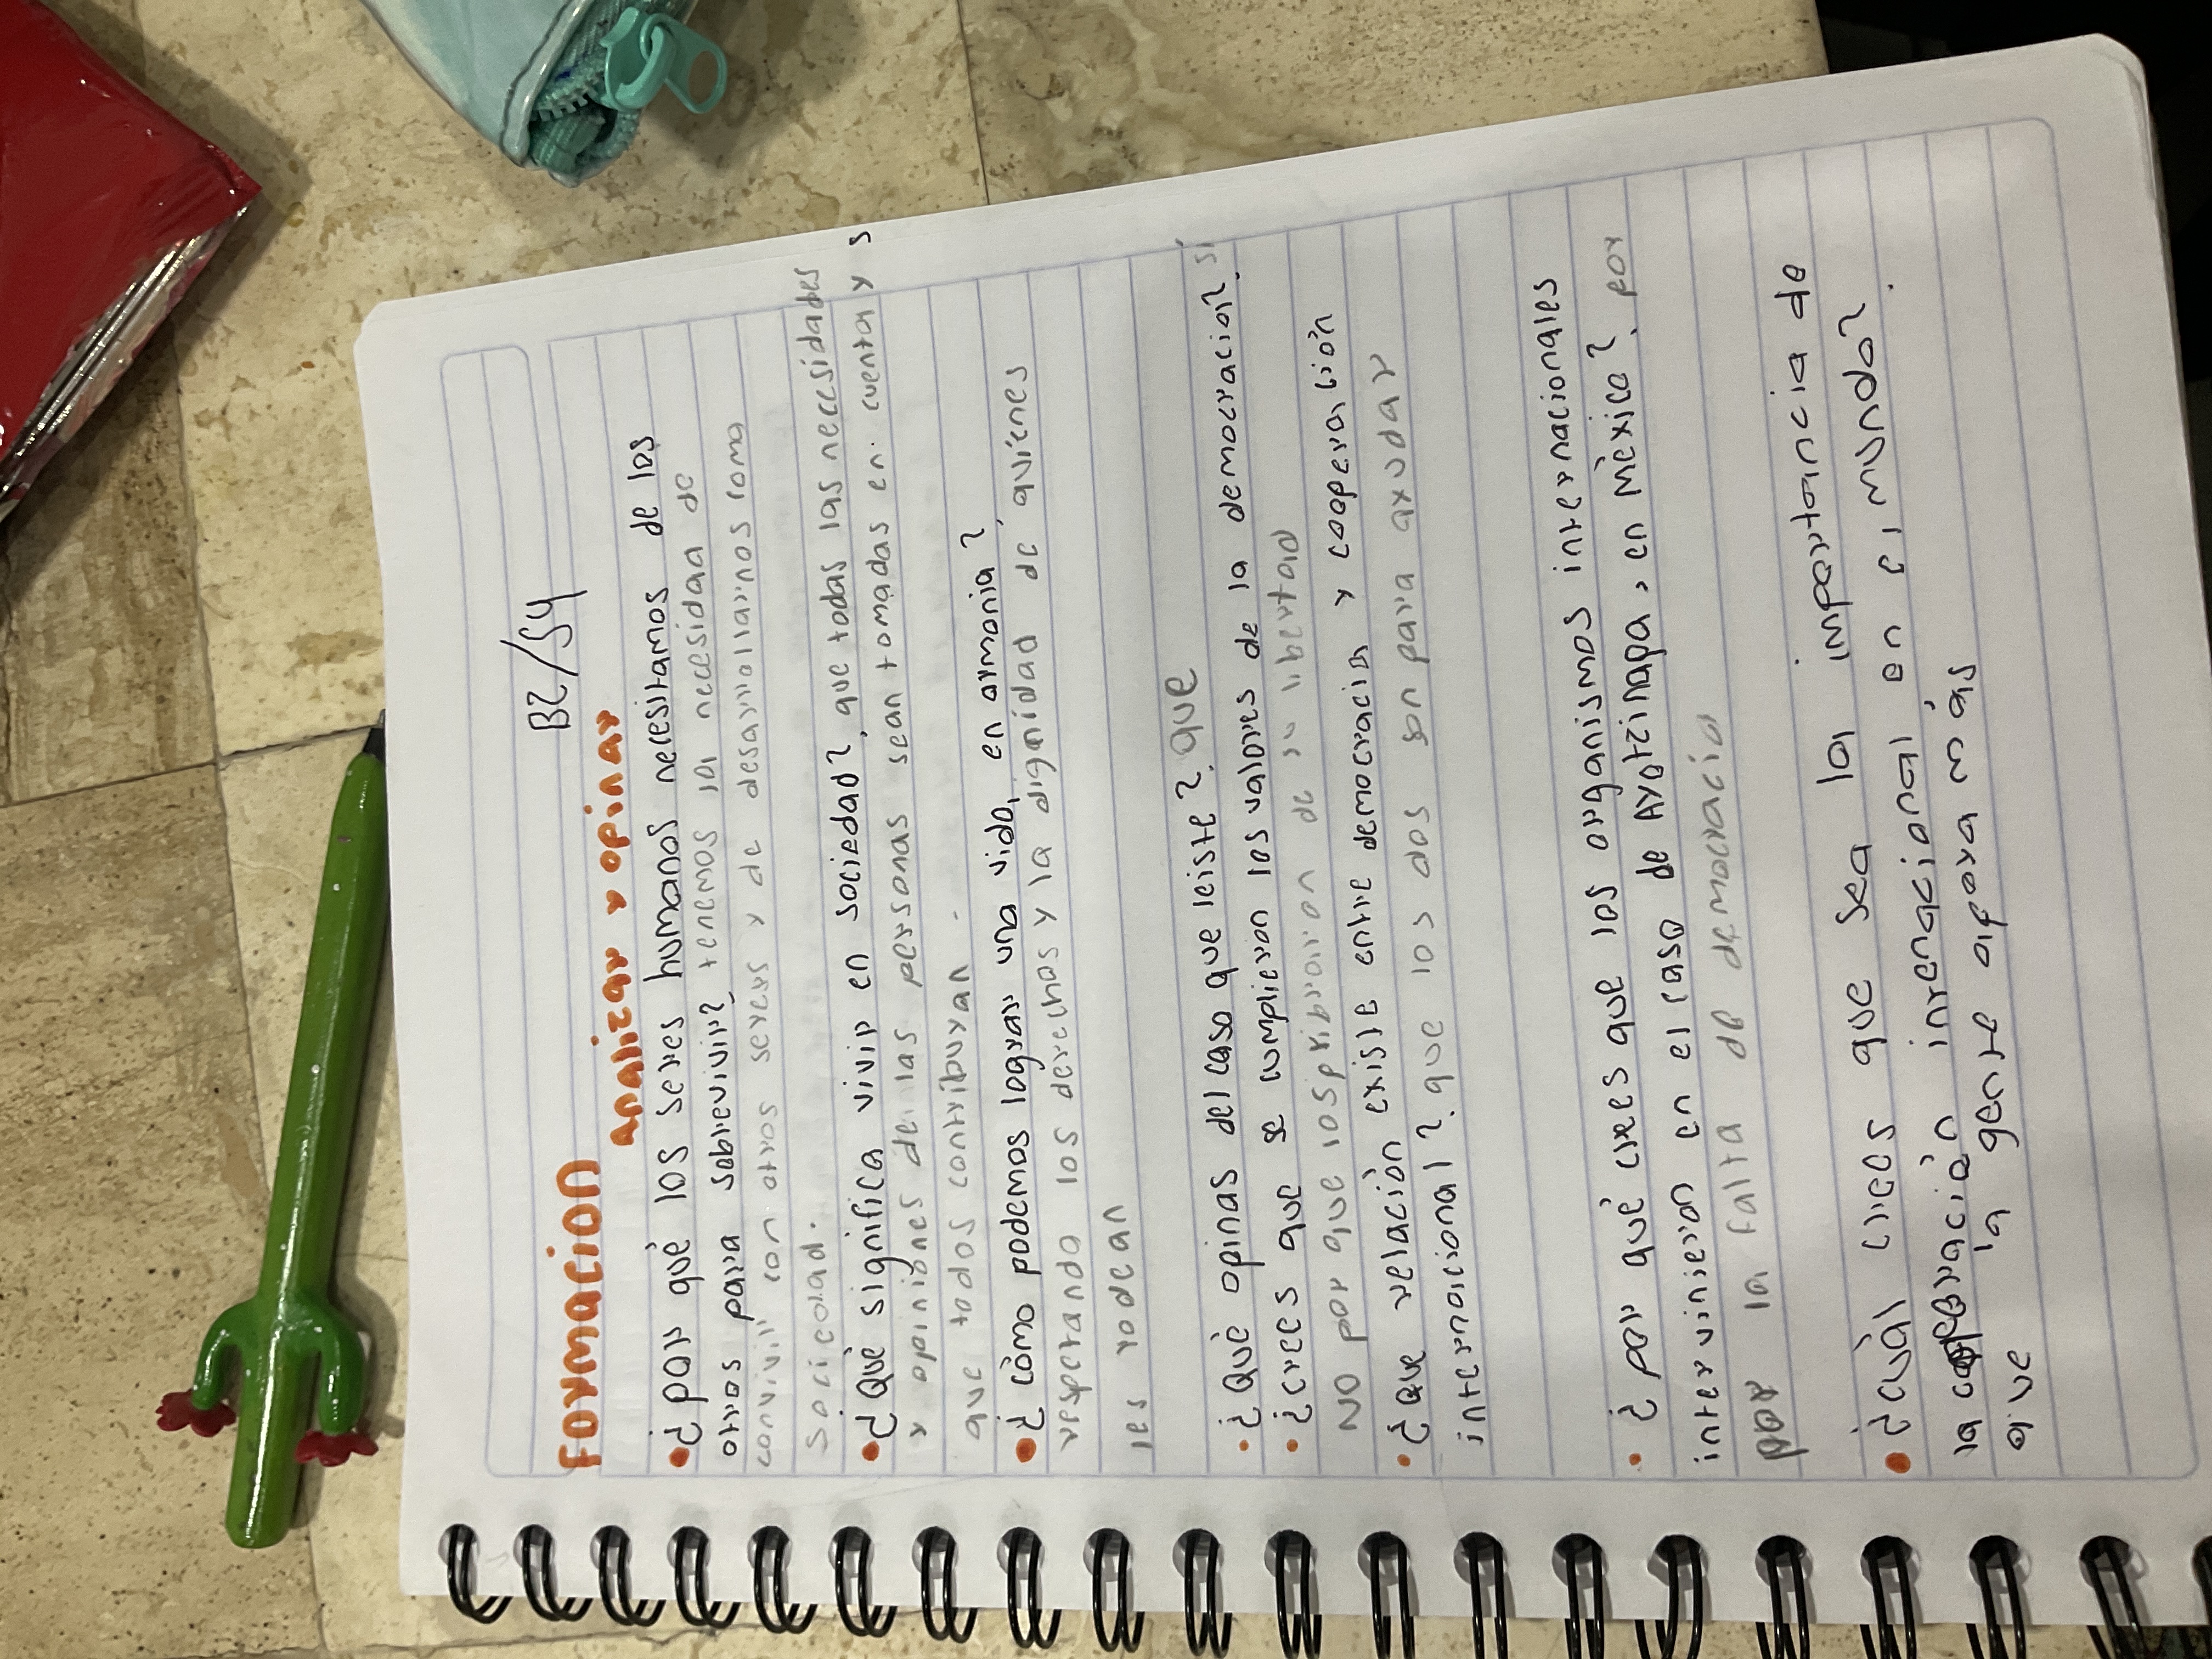 B2/S4
Formacion
analizar y opinar
• ¿por qué los seres humanos necesitamos de los
otros para sobrevivir? tenemos la necesidad de
convivir con otros seres y de desarrollarnos como
sociedad.
• ¿Qué significa vivir en sociedad? que todas las necesidades
y opiniones de las personas sean tomadas en cuenta y s
que todos contribuyan.
• ¿cómo podemos lograr una vida en armonia?
respetando los derechos y la dignidad de quiénes
les rodean
• ¿Qué opinas del caso que leiste? que
• ¿crees que se cumplieron los valores de la democracia? si
NO por que los de su libertad
• ¿Que relación existe entre democracia y cooperación
internacional? que los dos son para ayudar
• ¿por qué crees que los organismos internacionales
intervinieron en el caso de Ayotzinapa, en México? por
por la falta de democracia
• ¿cuál crees que sea la importancia de
la cooperación internacional en el mundo?
que la gente apoya más